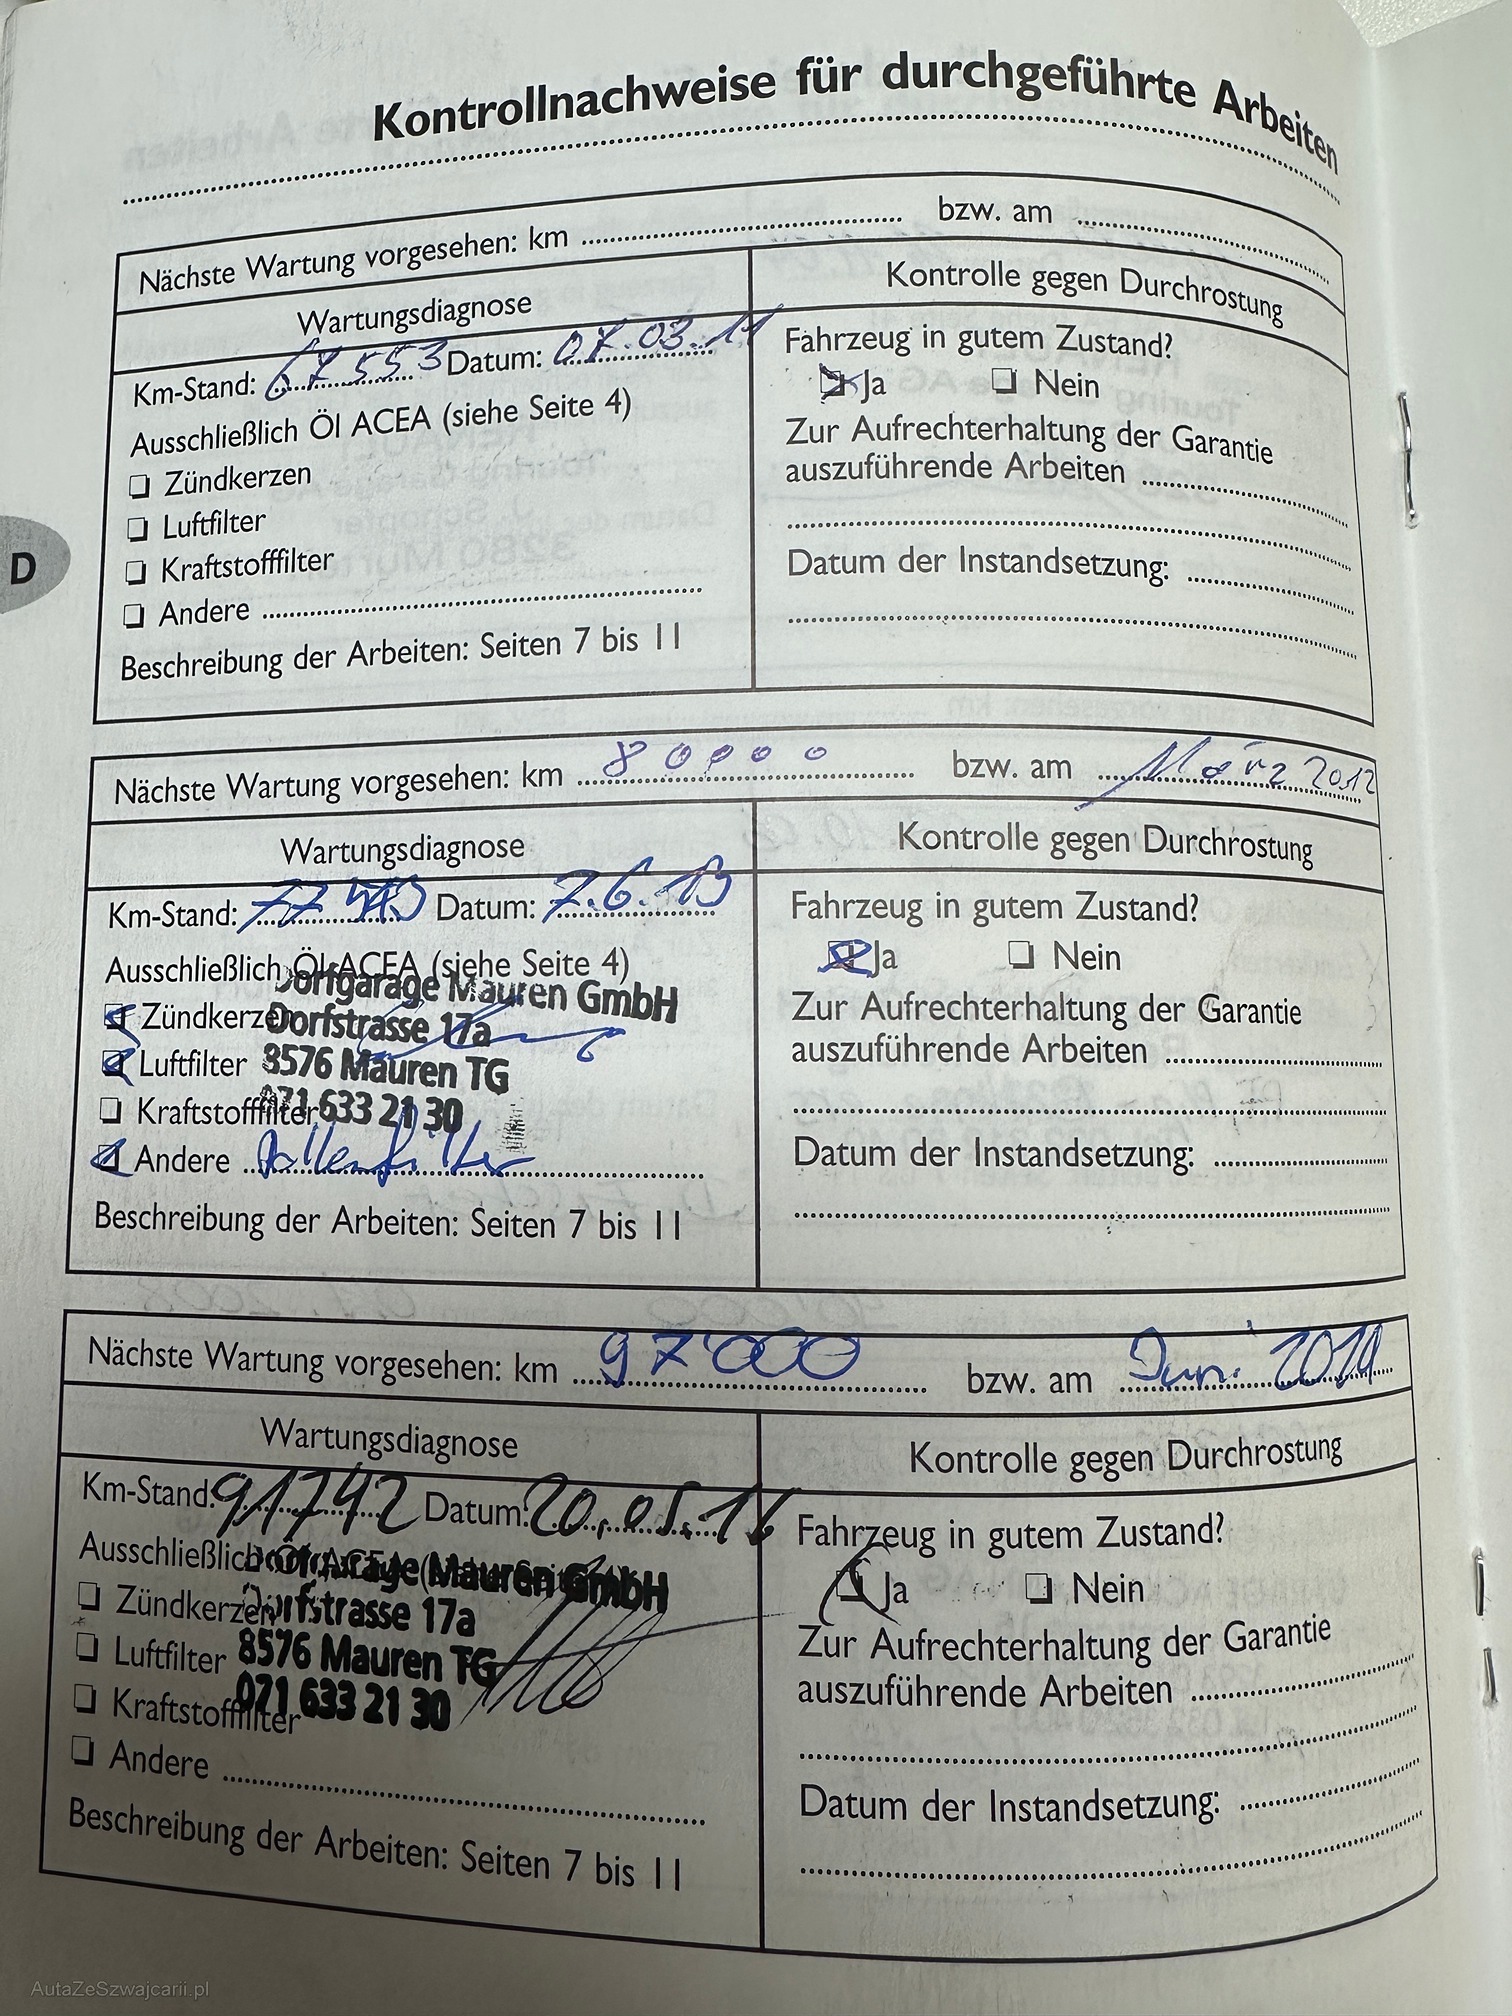 Kontrollnachweise für durchgeführte Arbeiten
Nächste Wartung vorgesehen: km bzw. am
Wartungsdiagnose
Kontrolle gegen Durchrostung
Km-Stand: 67553 Datum: 07.03.11
Fahrzeug in gutem Zustand?
Ja Nein
Ausschließlich Öl ACEA (siehe Seite 4)
Zur Aufrechterhaltung der Garantie
auszuführende Arbeiten
Zündkerzen
Luftfilter
Kraftstofffilter
Datum der Instandsetzung:
Andere
Beschreibung der Arbeiten: Seiten 7 bis 11
D
Nächste Wartung vorgesehen: km 80000 bzw. am März 2012
Wartungsdiagnose
Kontrolle gegen Durchrostung
Km-Stand: Datum: 7.6.13
Fahrzeug in gutem Zustand?
Ja Nein
Ausschließlich Öl ACEA (siehe Seite 4)
Dorfgarage Mauren GmbH
Zündkerzen
Dorfstrasse 17a
Luftfilter
8576 Mauren TG
Kraftstofffilter
071 633 21 30
Andere Pollenfilter
Zur Aufrechterhaltung der Garantie
auszuführende Arbeiten
Datum der Instandsetzung:
Beschreibung der Arbeiten: Seiten 7 bis 11
Nächste Wartung vorgesehen: km 97'000 bzw. am Juni
Wartungsdiagnose
Kontrolle gegen Durchrostung
Km-Stand: 91742 Datum: 20.05.16
Fahrzeug in gutem Zustand?
Ja Nein
Ausschließlich Öl ACEA
Dorfgarage Mauren GmbH
Zündkerzen
Dorfstrasse 17a
Luftfilter
8576 Mauren TG
Kraftstofffilter
071 633 21 30
Andere
Zur Aufrechterhaltung der Garantie
auszuführende Arbeiten
Datum der Instandsetzung:
Beschreibung der Arbeiten: Seiten 7 bis 11
AutaZeSzwajcarii.pl